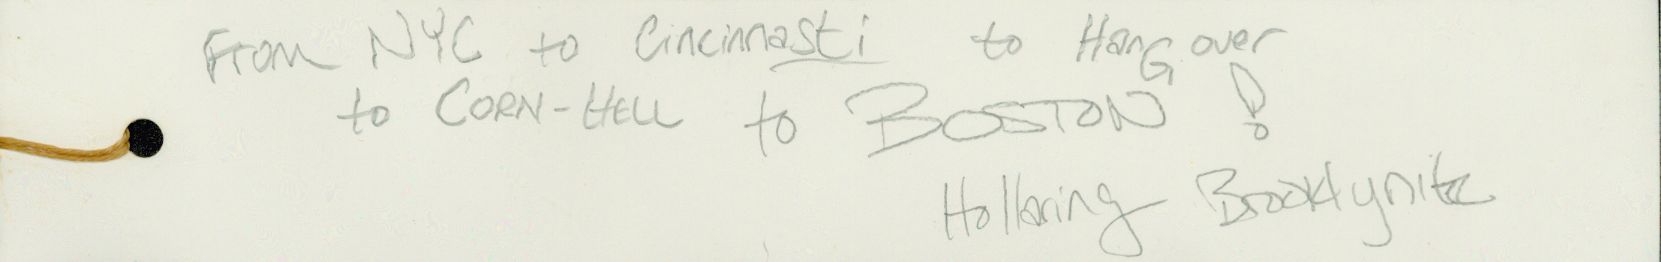 From NYC to Cincinnasti to HanGover
to CORN-HELL to BOSTON!
Hollering Brooklynite